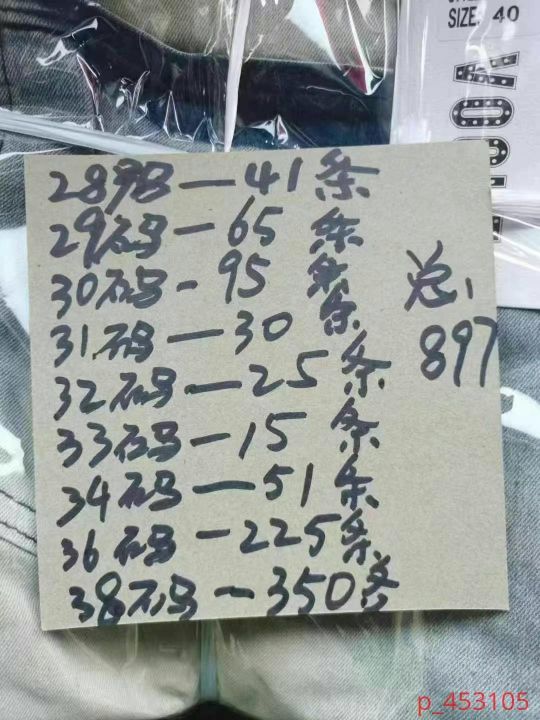 SIZE. 40
28码—41条
29码—65条
30码-95条
31码—30条
32码—25条
33码—15条
34码—51条
36码—225条
38码—350条
总
897
p_453105